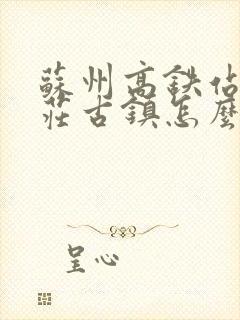 蘇州高鉄佔
莊古鎮怎麼
呈心